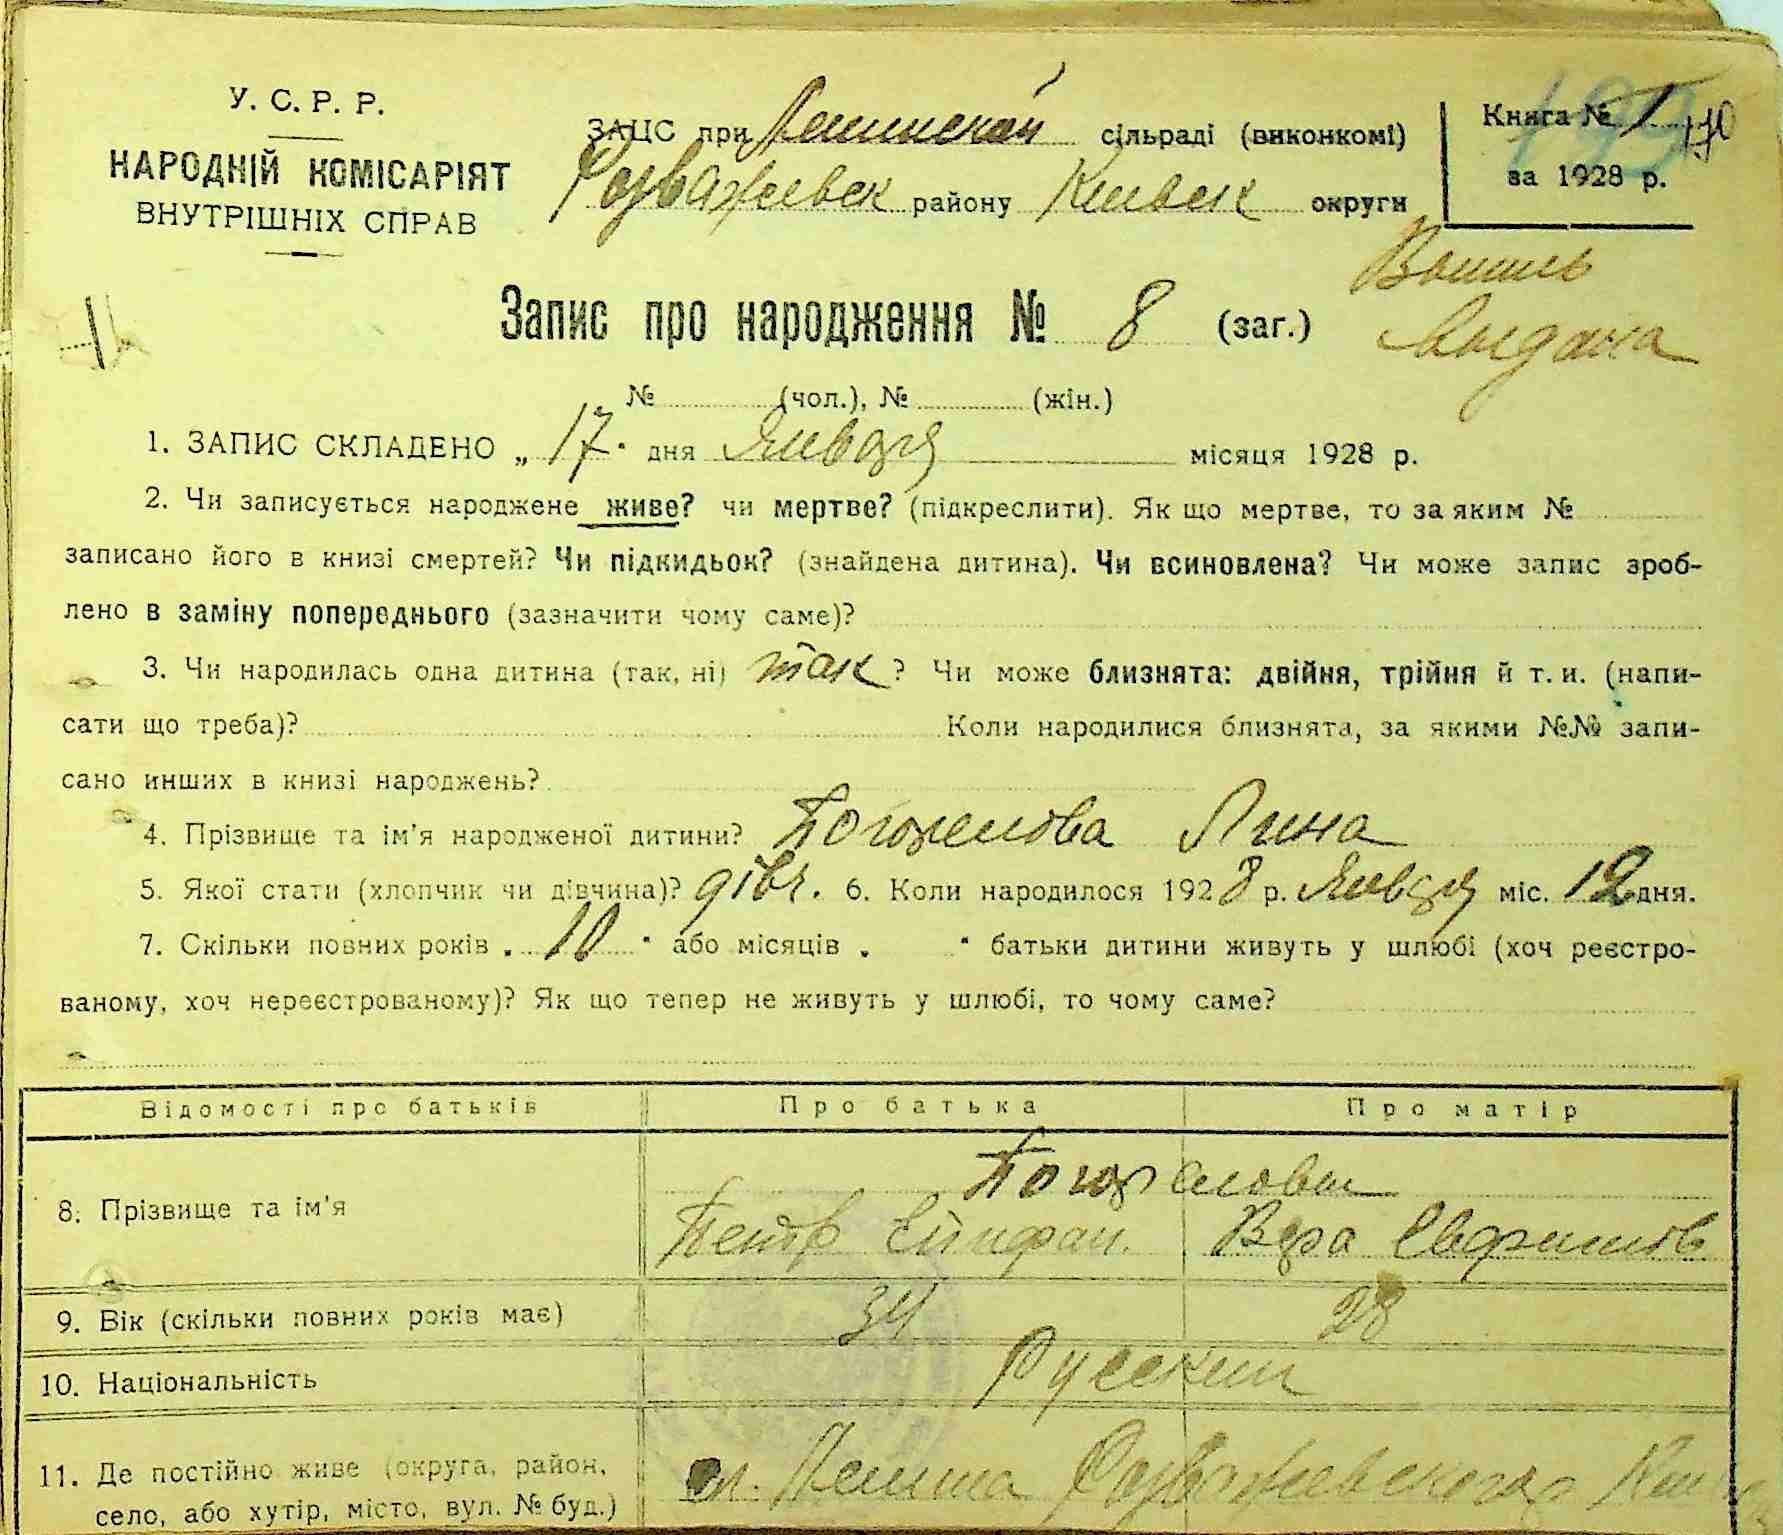 У. С. Р. Р.
НАРОДНІЙ КОМІСАРІЯТ
ВНУТРІШНІХ СПРАВ
ЗАЦС при сільраді (виконкомі)
Розважевск району Киевск округи
Книга № 1
за 1928 р.
Выпись
выдана
Запис про народження № 8 (заг.)
№ (чол.), № (жін.)
1. ЗАПИС СКЛАДЕНО „ 17 " дня Января місяця 1928 р.
2. Чи записується народжене живе? чи мертве? (підкреслити). Як що мертве, то за яким №
записано його в книзі смертей? Чи підкидьок? (знайдена дитина). Чи всиновлена? Чи може запис зроб-
лено в заміну попереднього (зазначити чому саме)?
3. Чи народилась одна дитина (так, ні) так ? Чи може близнята: двійня, трійня й т. и. (напи-
сати що треба)? Коли народилися близнята, за якими №№ запи-
сано инших в книзі народжень?
4. Прізвище та ім'я народженої дитини? Погорелова Лина
5. Якої стати (хлопчик чи дівчина)? дівч. 6. Коли народилося 1928 р. Января міс. 12 дня.
7. Скільки повних років „ 10 " або місяців „ " батьки дитини живуть у шлюбі (хоч реєстро-
ваному, хоч нереєстрованому)? Як що тепер не живуть у шлюбі, то чому саме?
Відомості про батьків Про батька Про матір
Погореловы
8. Прізвище та ім'я Петр Епифан. Вера
9. Вік (скільки повних років має) 34 28
10. Національність Русские
11. Де постійно живе (округа, район,
село, або хутір, місто, вул. № буд.) Розважевского